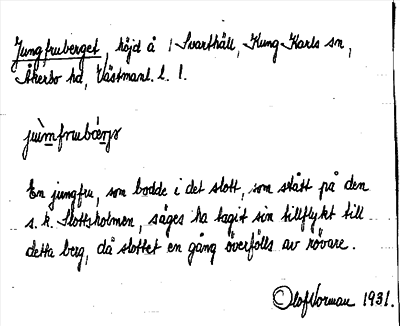 Jungfruberget, höjd å 1 Svarthäll, Kung Karls sn,
Åkerbo hd, Västmanl. l. 1.
En jungfru, som bodde i det slott, som stått på den
s. k. Slottsholmen, säges ha tagit sin tillflykt till
detta berg, då slottet en gång överfölls av rövare.
Olof Norman 1931.